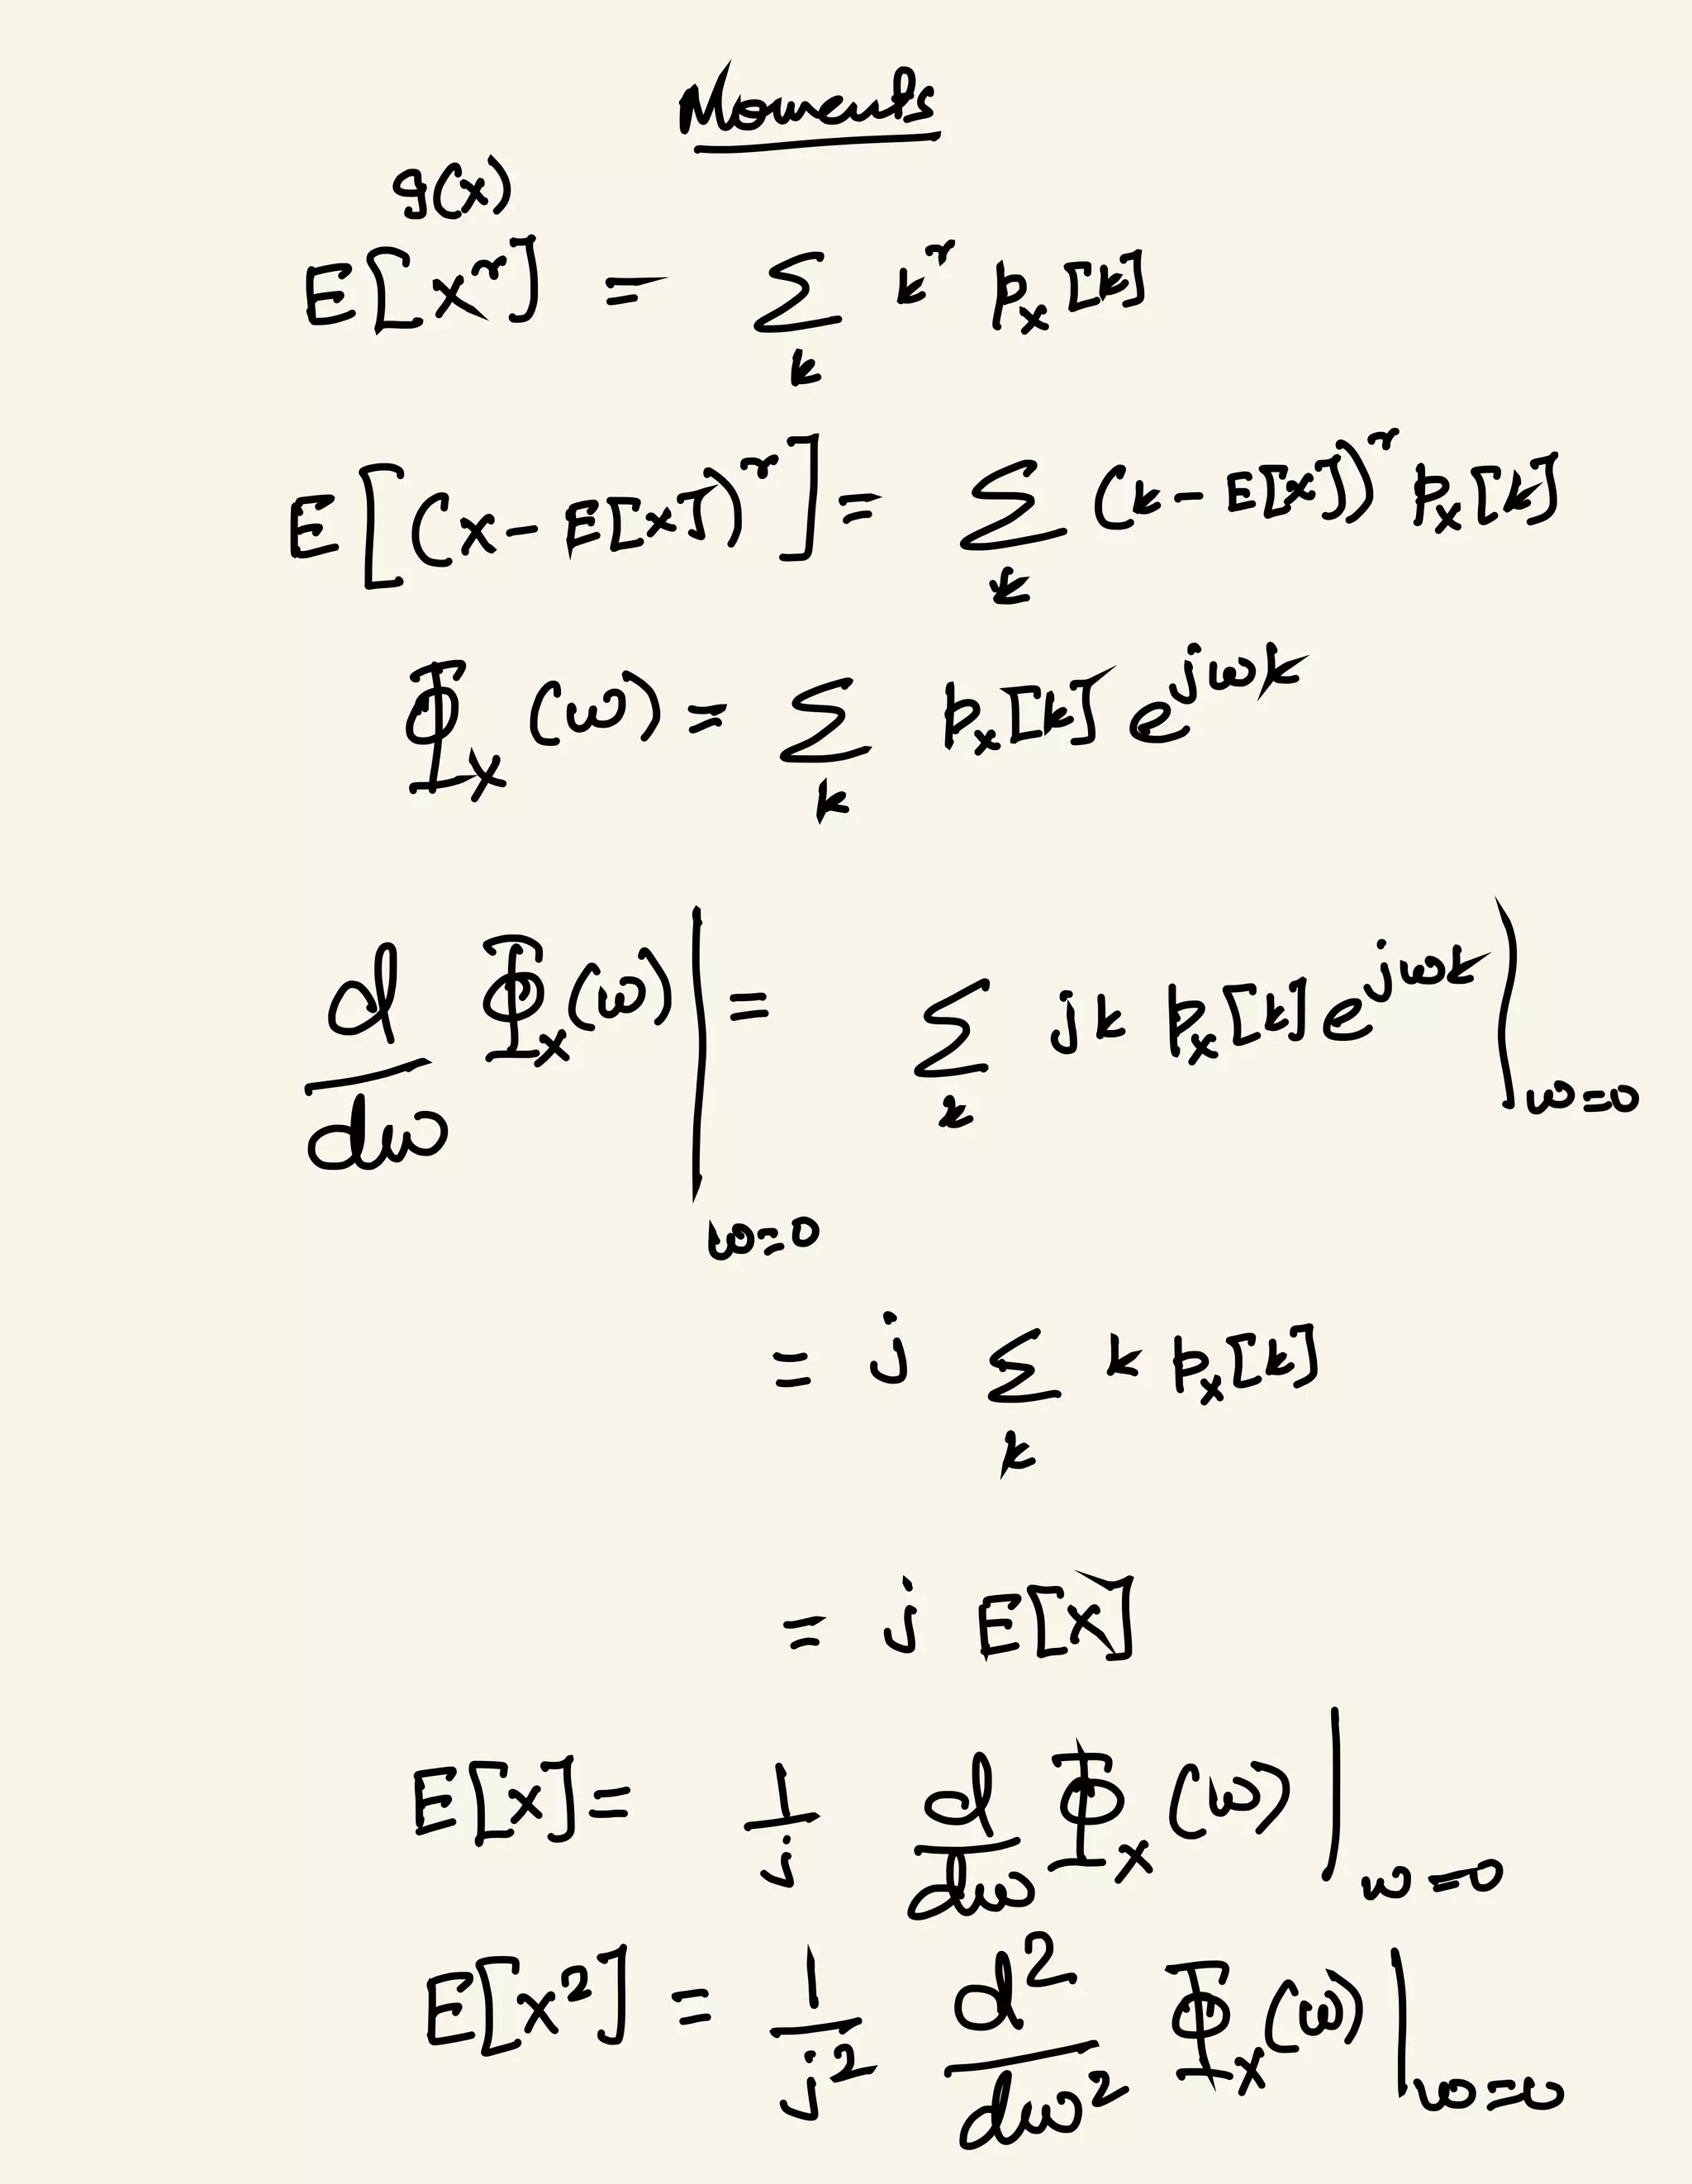 Moments
g(x)
E[X^r] = ∑_k k^r p_X[k]
E[(X-E[X])^r] = ∑_k (k-E[X])^r p_X[k]
Φ_X(ω) = ∑_k p_X[k] e^{jωk}
d/dω Φ_X(ω)|_{ω=0} = ∑_k jk p_X[k] e^{jωk}|_{ω=0}
= j ∑_k k p_X[k]
= j E[X]
E[X] = 1/j d/dω Φ_X(ω)|_{ω=0}
E[X^2] = 1/j^2 d^2/dω^2 Φ_X(ω)|_{ω=0}